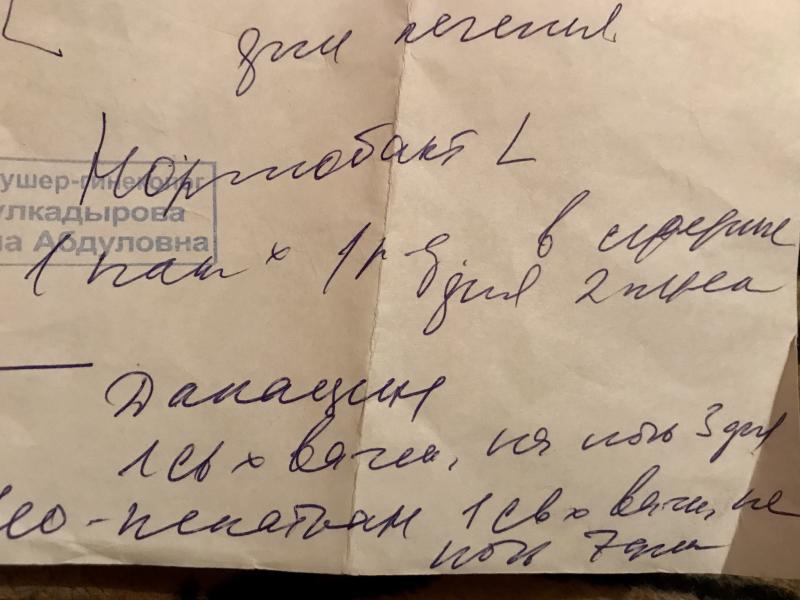 дни лечения
Нормобакт L
ушер-гинеколог
улкадырова
на Абдуловна
1 пак х 1 р д в середине
дня 2 
Далацин
1 св х вагин, на ночь 3 дня
ео-пенотран 1 св х вагин, на
ночь 7 дней